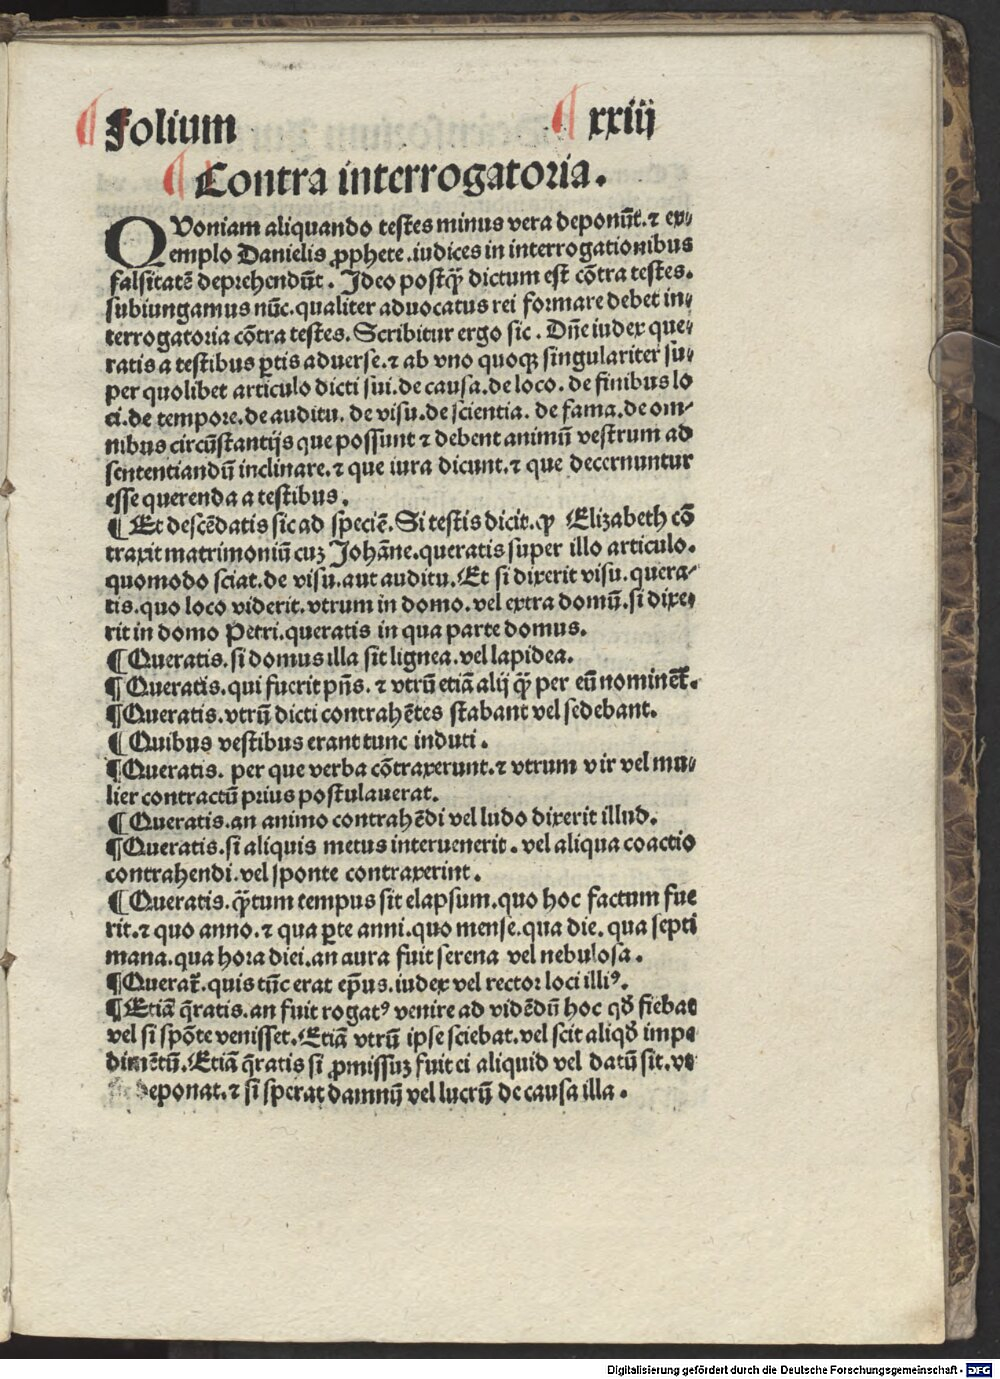 ¶ Folium ¶ xxiij
¶ Contra interrogatoria.
QVoniam aliquando testes minus vera deponũt. ⁊ ex⸗
emplo Danielis ꝓphete .iudices in interrogationibus
falsitatẽ deprehendũt . Ideo postq̃ dictum est cõtra testes.
subiungamus nũc.qualiter aduocatus rei formare debet in⸗
terrogatoria cõtra testes. Scribitur ergo sic . Dñe iudex que⸗
ratis a testibus ꝑtis aduerse.⁊ ab vno quoqꝫ singulariter su⸗
per quolibet articulo dicti sui.de causa.de loco. de finibus lo
ci.de tempore.de auditu. de visu.de scientia. de fama.de om⸗
nibus circũstantijs que possunt ⁊ debent animũ vestrum ad
sententiandũ inclinare.⁊ que iura dicunt.⁊ que decernuntur
esse querenda a testibus.
¶ Et descẽdatis sic ad speciẽ. Si testis dicit.ꝙ Elizabeth cõ
traxit matrimoniũ cuꝫ Johãne.queratis super illo articulo.
quomodo sciat.de visu.aut auditu.Et si dixerit visu.quera⸗
tis.quo loco viderit.vtrum in domo.vel extra domũ.si dixe⸗
rit in domo Petri.queratis in qua parte domus.
¶ Queratis.si domus illa sit lignea.vel lapidea.
¶ Queratis.qui fuerit pñs. ⁊ vtrũ etiã alij q̃ per eũ nominẽt̃.
¶ Queratis.vtrũ dicti contrahẽtes stabant vel sedebant.
¶ Quibus vestibus erant tunc induti .
¶ Queratis. per que verba cõtraxerunt.⁊ vtrum vir vel mu⸗
lier contractũ prius postulauerat.
¶ Queratis.an animo contrahẽdi vel ludo dixerit illud.
¶ Queratis.si aliquis metus interuenerit . vel aliqua coactio
contrahendi.vel sponte contraxerint .
¶ Queratis.q̃tum tempus sit elapsum.quo hoc factum fue
rit.⁊ quo anno.⁊ qua ꝑte anni.quo mense.qua die. qua septi
mana.qua hora diei.an aura fuit serena vel nebulosa .
¶ Querat̃.quis tũc erat ep̃us.iudex vel rector loci illiꝰ.
¶ Etiã q̃ratis.an fuit rogatꝰ venire ad vidẽdũ hoc qđ fiebat
vel si spõte venisset.Etiã vtrũ ipse sciebat.vel scit aliqđ impe
dimẽtũ.Etiã q̃ratis si ꝓmissuꝫ fuit ei aliquid vel datũ sit.vt
deponat.⁊ si sperat damnũ vel lucrũ de causa illa .
Digitalisierung gefördert durch die Deutsche Forschungsgemeinschaft - DFG